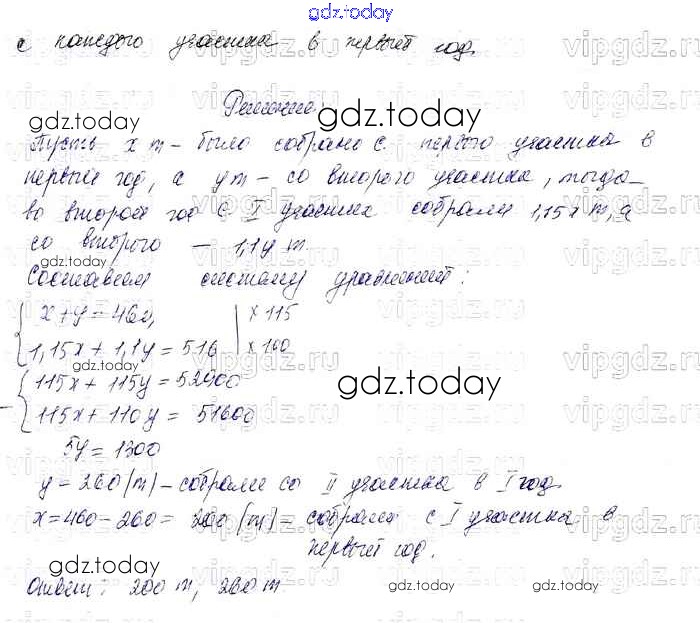 gdz.today
с каждого участка в первый год.
Решение:
gdz.today
gdz.today
Пусть x т – было собрано с первого участка в
первый год, а y т – со второго участка, тогда
во второй год с I участка собрали 1,15x т, а
со второго – 1,1y т.
gdz.today
Составим систему уравнений:
x+y=460, | ×115
1,15x+1,1y=516 | ×100
gdz.today
115x+115y=52900
gdz.today
– 115x+110y=51600
5y=1300
y=260 (т) – собрали со II участка в I год.
x=460-260=200 (т) – собрали с I участка в
первый год.
gdz.today
Ответ: 200 т, 260 т.
gdz.today
gdz.today
gdz.today
vipgdz.ru